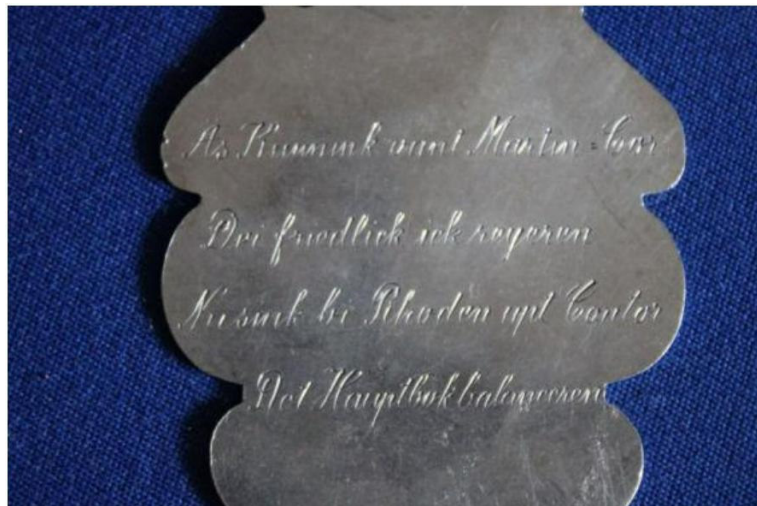 As Kunnink vant Martin=Cor
Dei friedlick ick regeren
Nu sink bi Rhoden upt Contor
Dat Hauptbok balanceeren